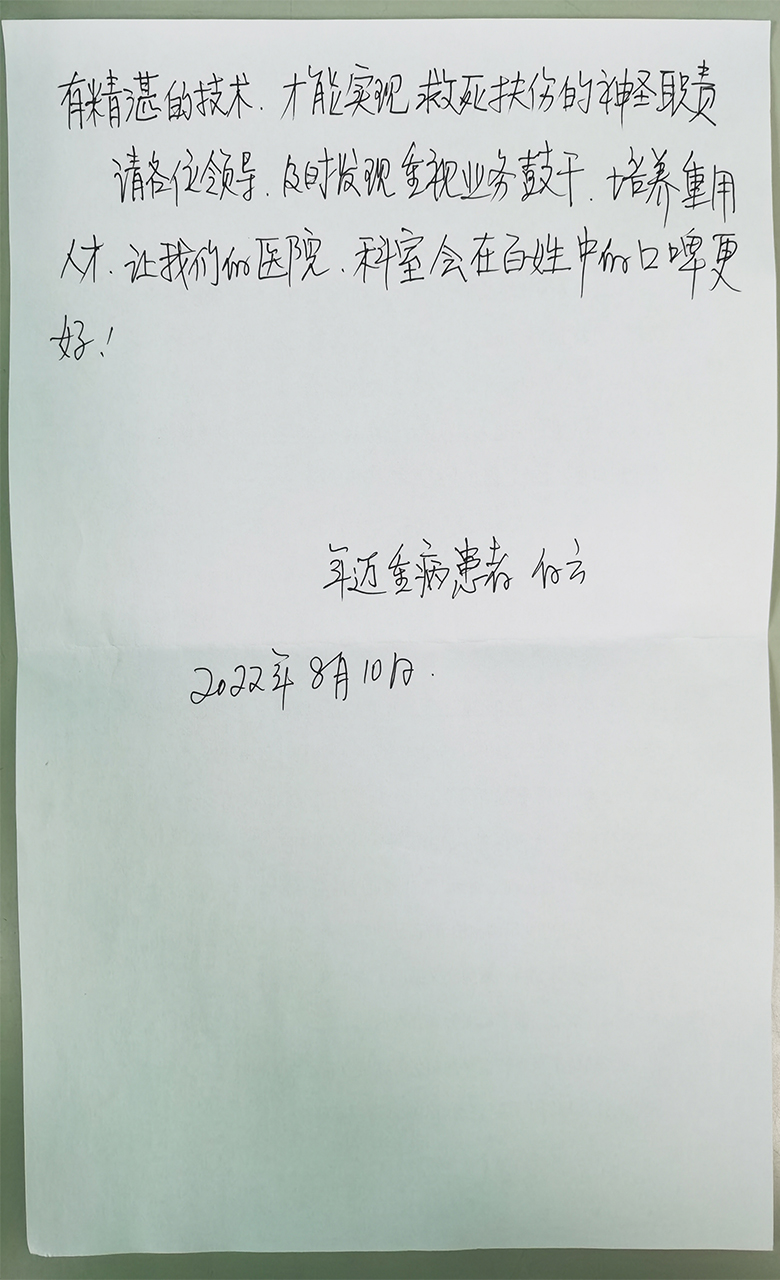 有精湛的技术.才能实现救死扶伤的神圣职责
请各位领导.及时发现重视业务鼓干.培养重用
人才.让我们的医院.科室会在百姓中的口啤更
好！
年迈重病患者 付云
2022年8月10日.